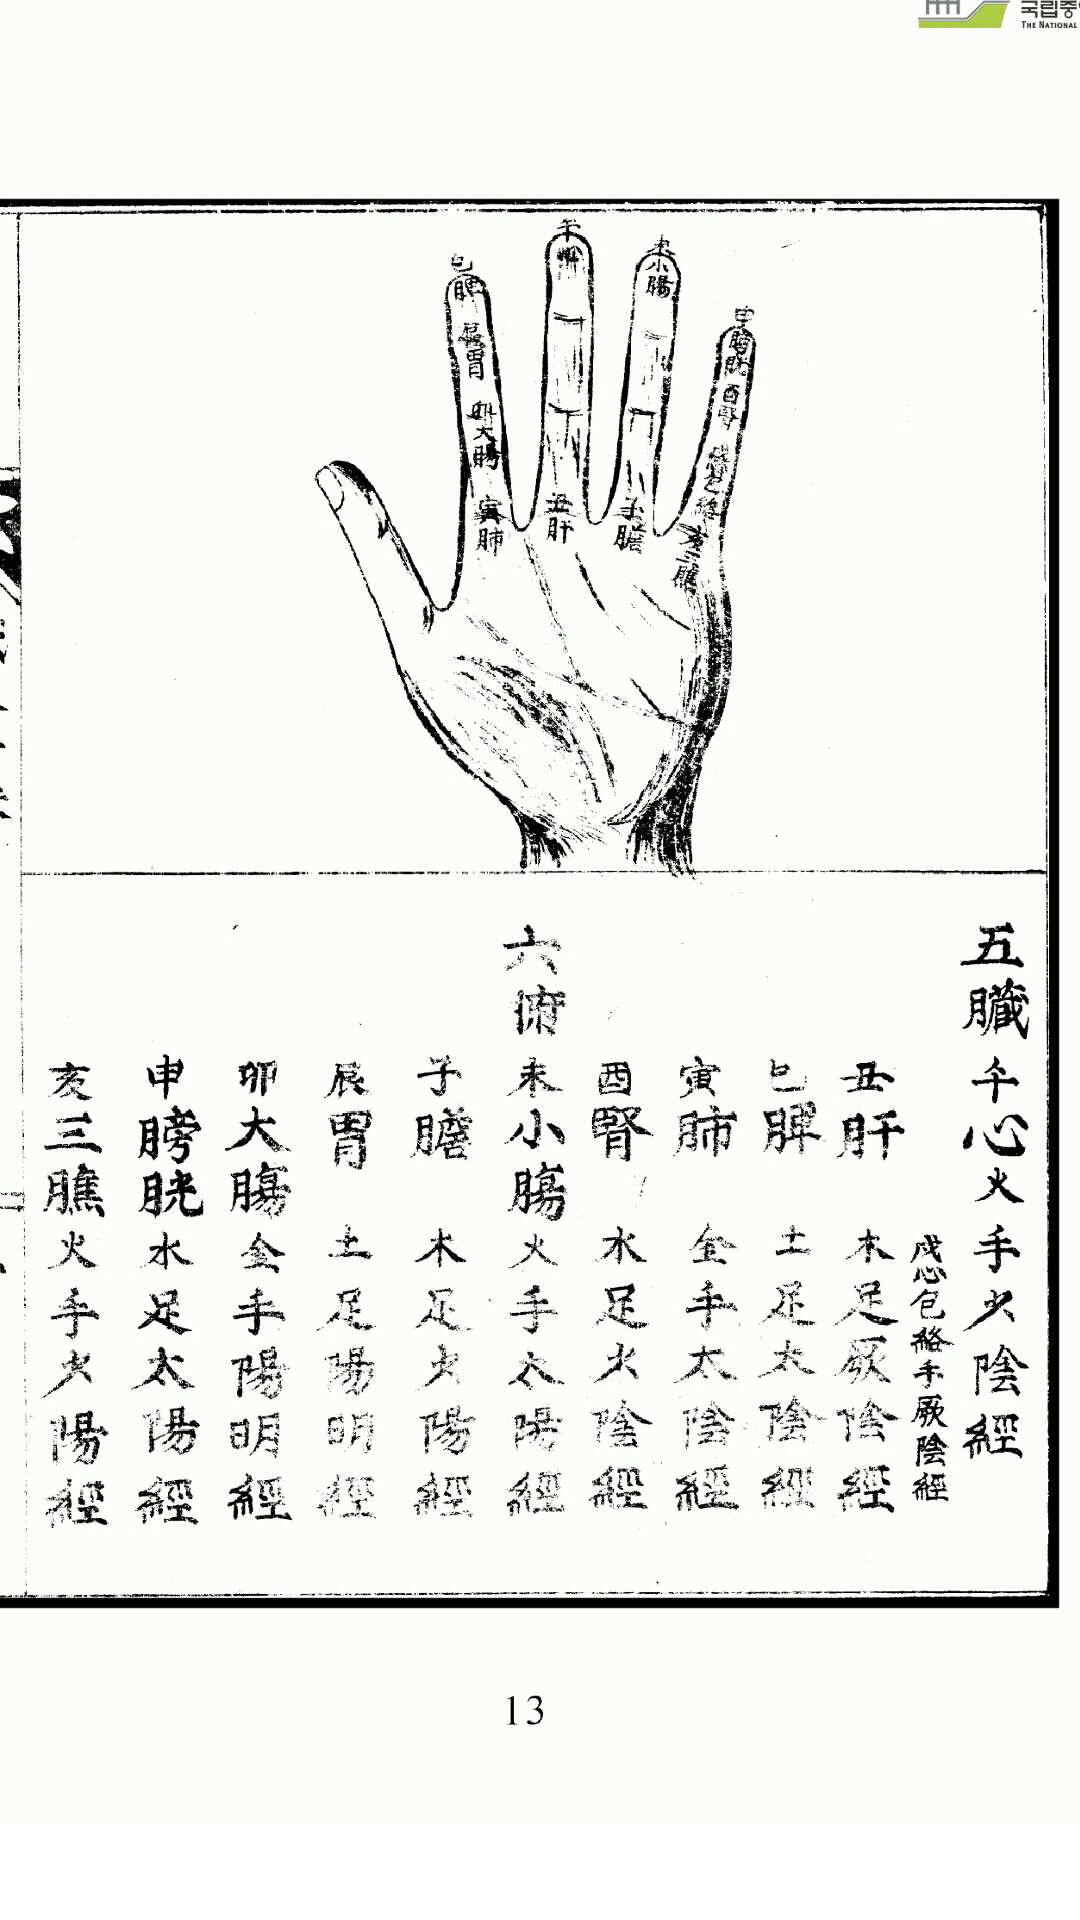 국립중
THE NATIONAL
午
巳脾
辰胃
卯大腸
寅肺
丑肝
未小腸
子膽
申膀胱
酉腎
包絡
亥三膲
五臟 午心火手少陰經
戌心包絡手厥陰經
丑肝木足厥陰經
巳脾土足太陰經
寅肺金手太陰經
酉腎水足少陰經
六腑 未小腸火手太陽經
子膽木足少陽經
辰胃土足陽明經
卯大腸金手陽明經
申膀胱水足太陽經
亥三膲火手少陽經
13